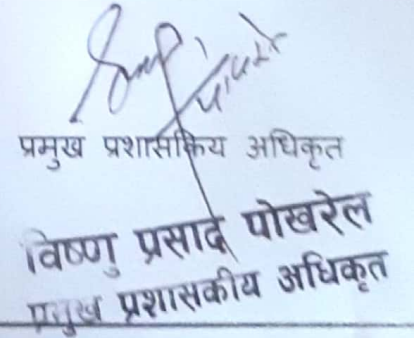 प्रमुख प्रशासकिय अधिकृत
विष्णु प्रसाद पोखरेल
प्रमुख प्रशासकीय अधिकृत